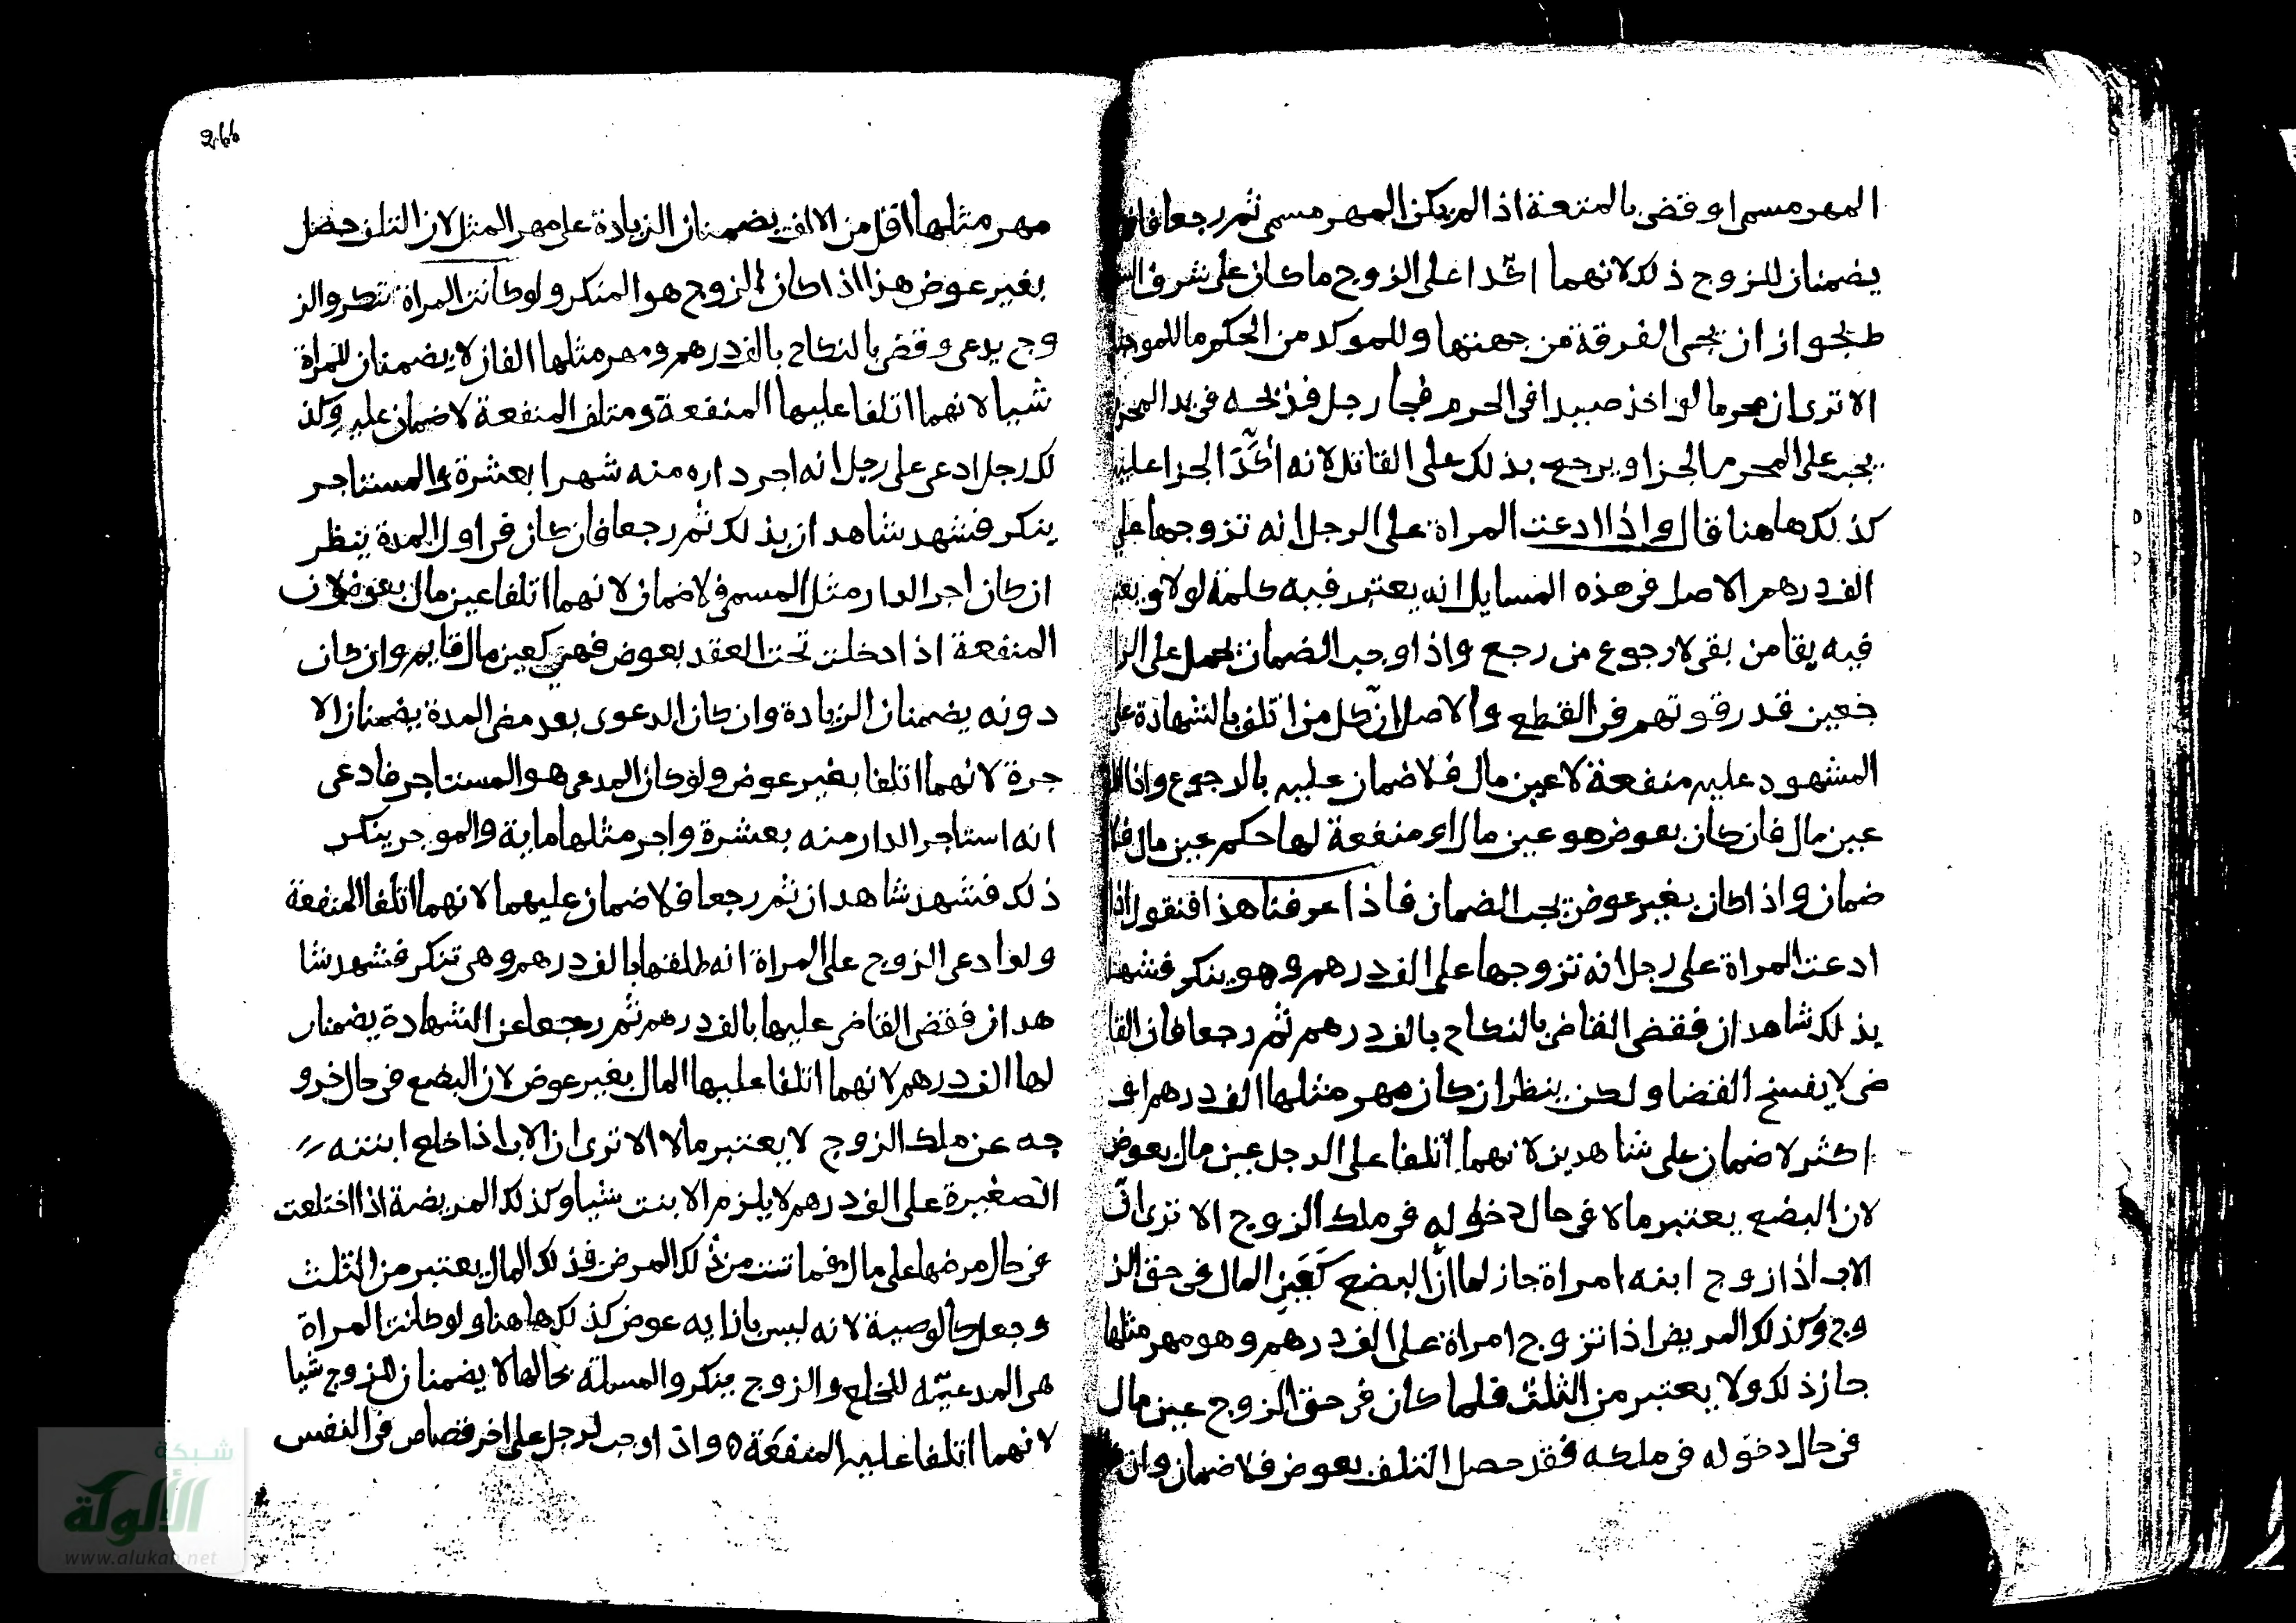 المهر مسمى او قضى بالمتعة اذا لم يكن المهر مسمى ثم رجعا فانهما
يضمنان للزوج ذلك لانهما اكّدا على الزوج ما كان على شرف السقو
ط لجواز ان يجى الفرقة من جهتها وللموكد من الحكم ما للموجب
الا ترى ان محرما لو اخذ صيدا فى الحرم فجا رجل فذبحه فى يد المحرم
يجب على المحرم الجزا ويرجع بذلك على القاتل لانه اكّدَ الجزا عليه
كذلك هاهنا قال واذا ادعت المراة على الرجل انه تزوجها على
الف درهم الاصل فى هذه المسايل انه يعتبر فيه كلمة لولا ويعتبر
فيه بقا من بقى لا رجوع من رجع واذا وجب الضمان يحمل على الرا
جعين قدر قوتهم فى القطع والاصل انّ كل من اتلف بالشهادة على
المشهود عليه منفعة لا عين مال فلا ضمان عليه بالرجوع واذا اتلف
عين مال فان كان بعوض هو عين مال او منفعة لها حكم عين مال فلا
ضمان واذا كان بغير عوض يجب الضمان فاذا عرفنا هذا فنقول اذا
ادعت المراة على رجل انه تزوجها على الف درهم وهو ينكر فشهد
بذلك شاهدان فقضى القاضى بالنكاح بالف درهم ثم رجعا فان القا
ضى لا يفسخ القضا ولكن ينظر ان كان مهر مثلها الف درهم او
اكثر لا ضمان على شاهدين لانهما اتلفا على الرجل عين مال بعوض
لان البضع يعتبر مالا فى حال دخوله فى ملك الزوج الا ترى انّ
الاب اذا زوج ابنه امراة جاز لما انّ البضع كَعَينِ المال فى حق الز
وج وكذلك المريض اذا تزوج امراة على الف درهم وهو مهر مثلها
جاز ذلك ولا يعتبر من الثلث فلما كان فى حق الزوج عين مال
فى حال دخوله فى ملكه فقد حصل التلف بعوض فلا ضمان وان كان
266
مهر مثلها اقل من الالف يضمنان الزيادة على مهر المثل لان التلف حصل
بغير عوض هذا اذا كان الزوج هو المنكر ولو كانت المراة تنكر والز
وج يدعى وقضى بالنكاح بالف درهم ومهر مثلها الفان لا يضمنان للمراة
شيا لانهما اتلفا عليها المنفعة ومتلف المنفعة لا ضمان عليه وكذ
لك رجل ادعى على رجل انه اجر داره منه شهرا بعشرة والمستاجر
ينكر فشهد شاهدان بذلك ثم رجعا فان كان فى اول المدة ينظر
ان كان اجر الدار مثل المسمى فلا ضمان لانهما اتلفا عين مال بعوض لان
المنفعة اذا دخلت تحت العقد بعوض فهى كعين مال قايم وان كان
دونه يضمنان الزيادة وان كان الدعوى بعد مضى المدة يضمنان الا
جرة لانهما اتلفا بغير عوض ولو كان المدعى هو المستاجر فادعى
انه استاجر الدار منه بعشرة واجر مثلها ماية والموجر ينكر
ذلك فشهد شاهدان ثم رجعا فلا ضمان عليهما لانهما اتلفا المنفعة
ولو ادعى الزوج على المراة انه طلقها بالف درهم وهى تنكر فشهد شا
هدان فقضى القاضى عليها بالف درهم ثم رجعا عن الشهادة يضمنان
لها الف درهم لانهما اتلفا عليها المال بغير عوض لان البضع فى حال خرو
جه عن ملك الزوج لا يعتبر مالا الا ترى ان الاب اذا خلع ابنته
الصغيرة على الف درهم لا يلزم الابنت شيا وكذلك المريضة اذا اختلعت
فى حال مرضها على مال فماتت من ذلك المرض فذلك المال يعتبر من الثلث
وجعل كالوصية لانه ليس بازايه عوض كذلك هاهنا ولو كانت المراة
هى المدعيّه للخلع والزوج ينكر والمسلة بحالها لا يضمنان للزوج شيا
لانهما اتلفا عليه المنفعَة ٥ واذا وجب لرجل على اخر قصاص فى النفس
شبكة
الألوكة
www.alukah.net